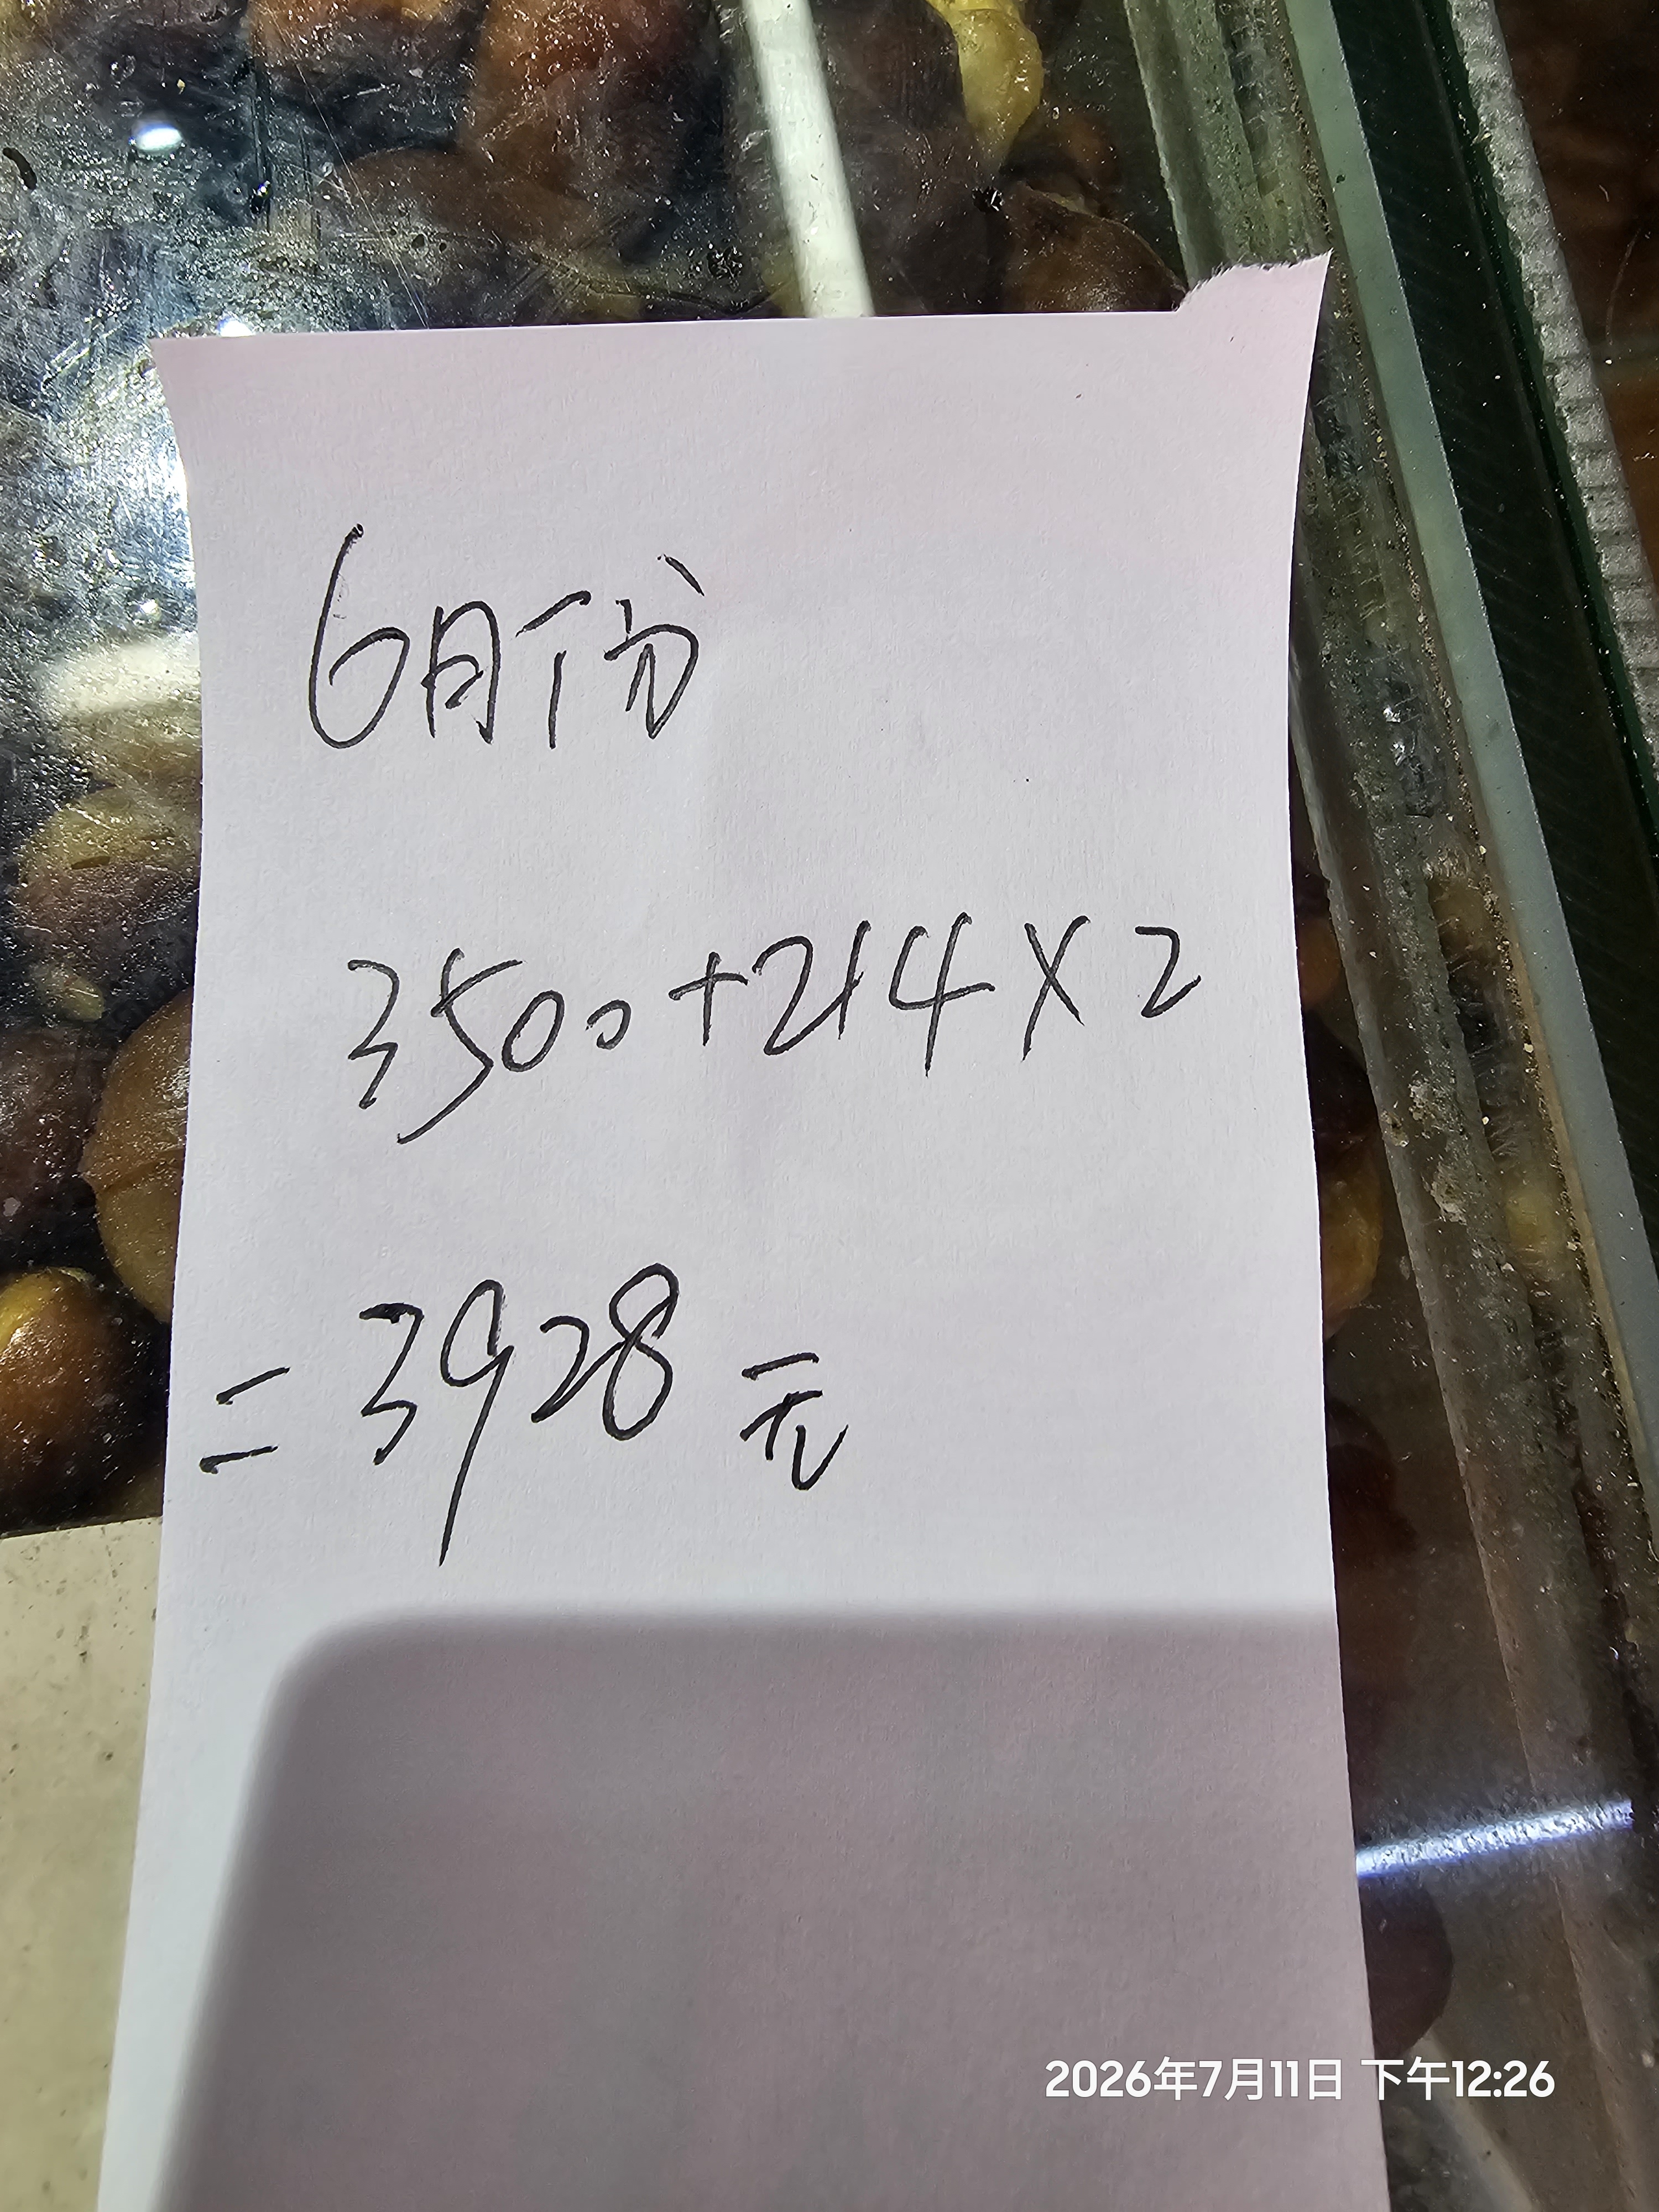 6月份
3500+214×2
=3928元
2026年7月11日 下午12:26